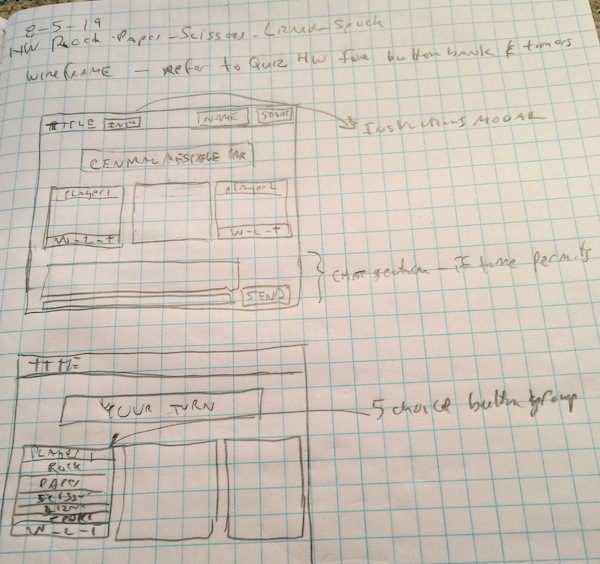 8-5-19
HW Rock-Paper-Scissors-Lizard-Spock
WIREFRAME - Refer to Quiz HW for button bank & timers
TITLE INST NAME START
Instructions MODAL
CENTRAL MESSAGE BAR
Player 1 Player 2
W-L-T W-L-T
section - if time permits
SEND
TITLE
YOUR TURN
5 choice button group
PLAYER 1
ROCK
PAPER
W-L-T